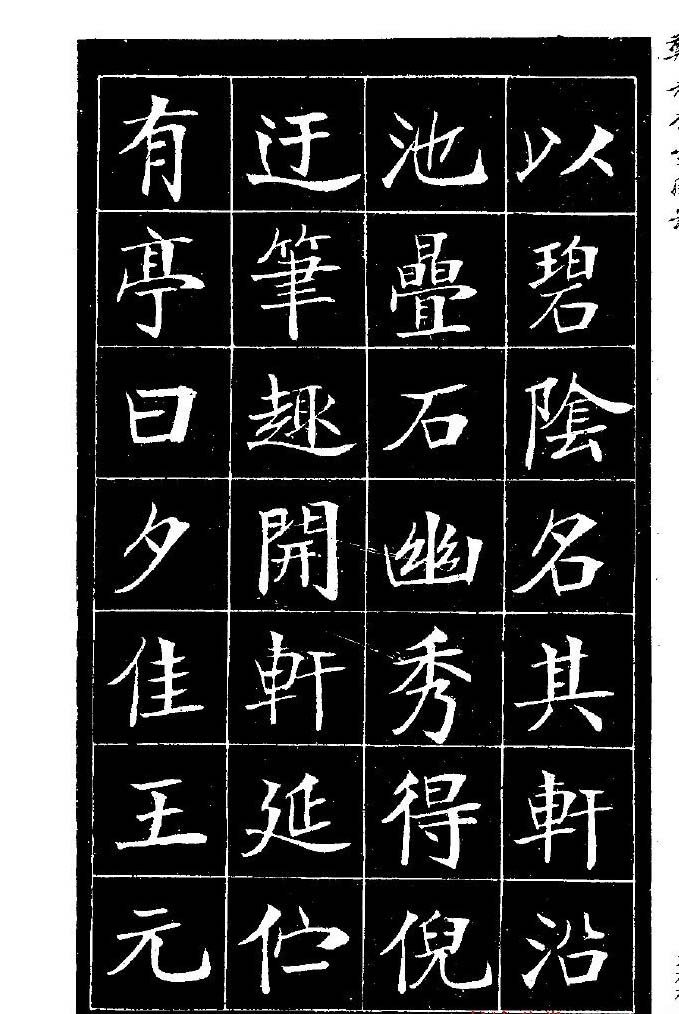 以碧陰名其軒沿
池曡石幽秀得倪
迂筆趣開軒延伫
有亭曰夕佳王元